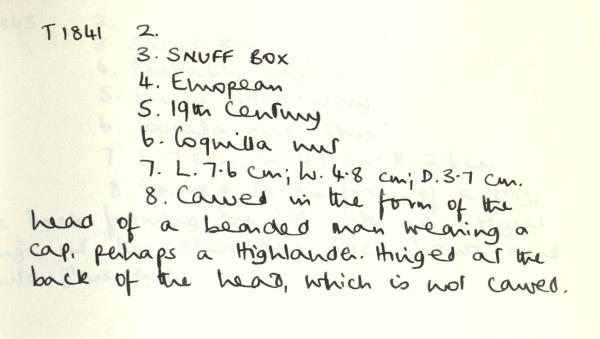 T1841 2.
3. SNUFF BOX
4. European
5. 19th Century
6. Coquilla nut
7. L. 7.6 cm; W. 4.8 cm; D. 3.7 cm.
8. Carved in the form of the
head of a bearded man wearing a
cap, perhaps a Highlander. Hinged at the
back of the head, which is not carved.